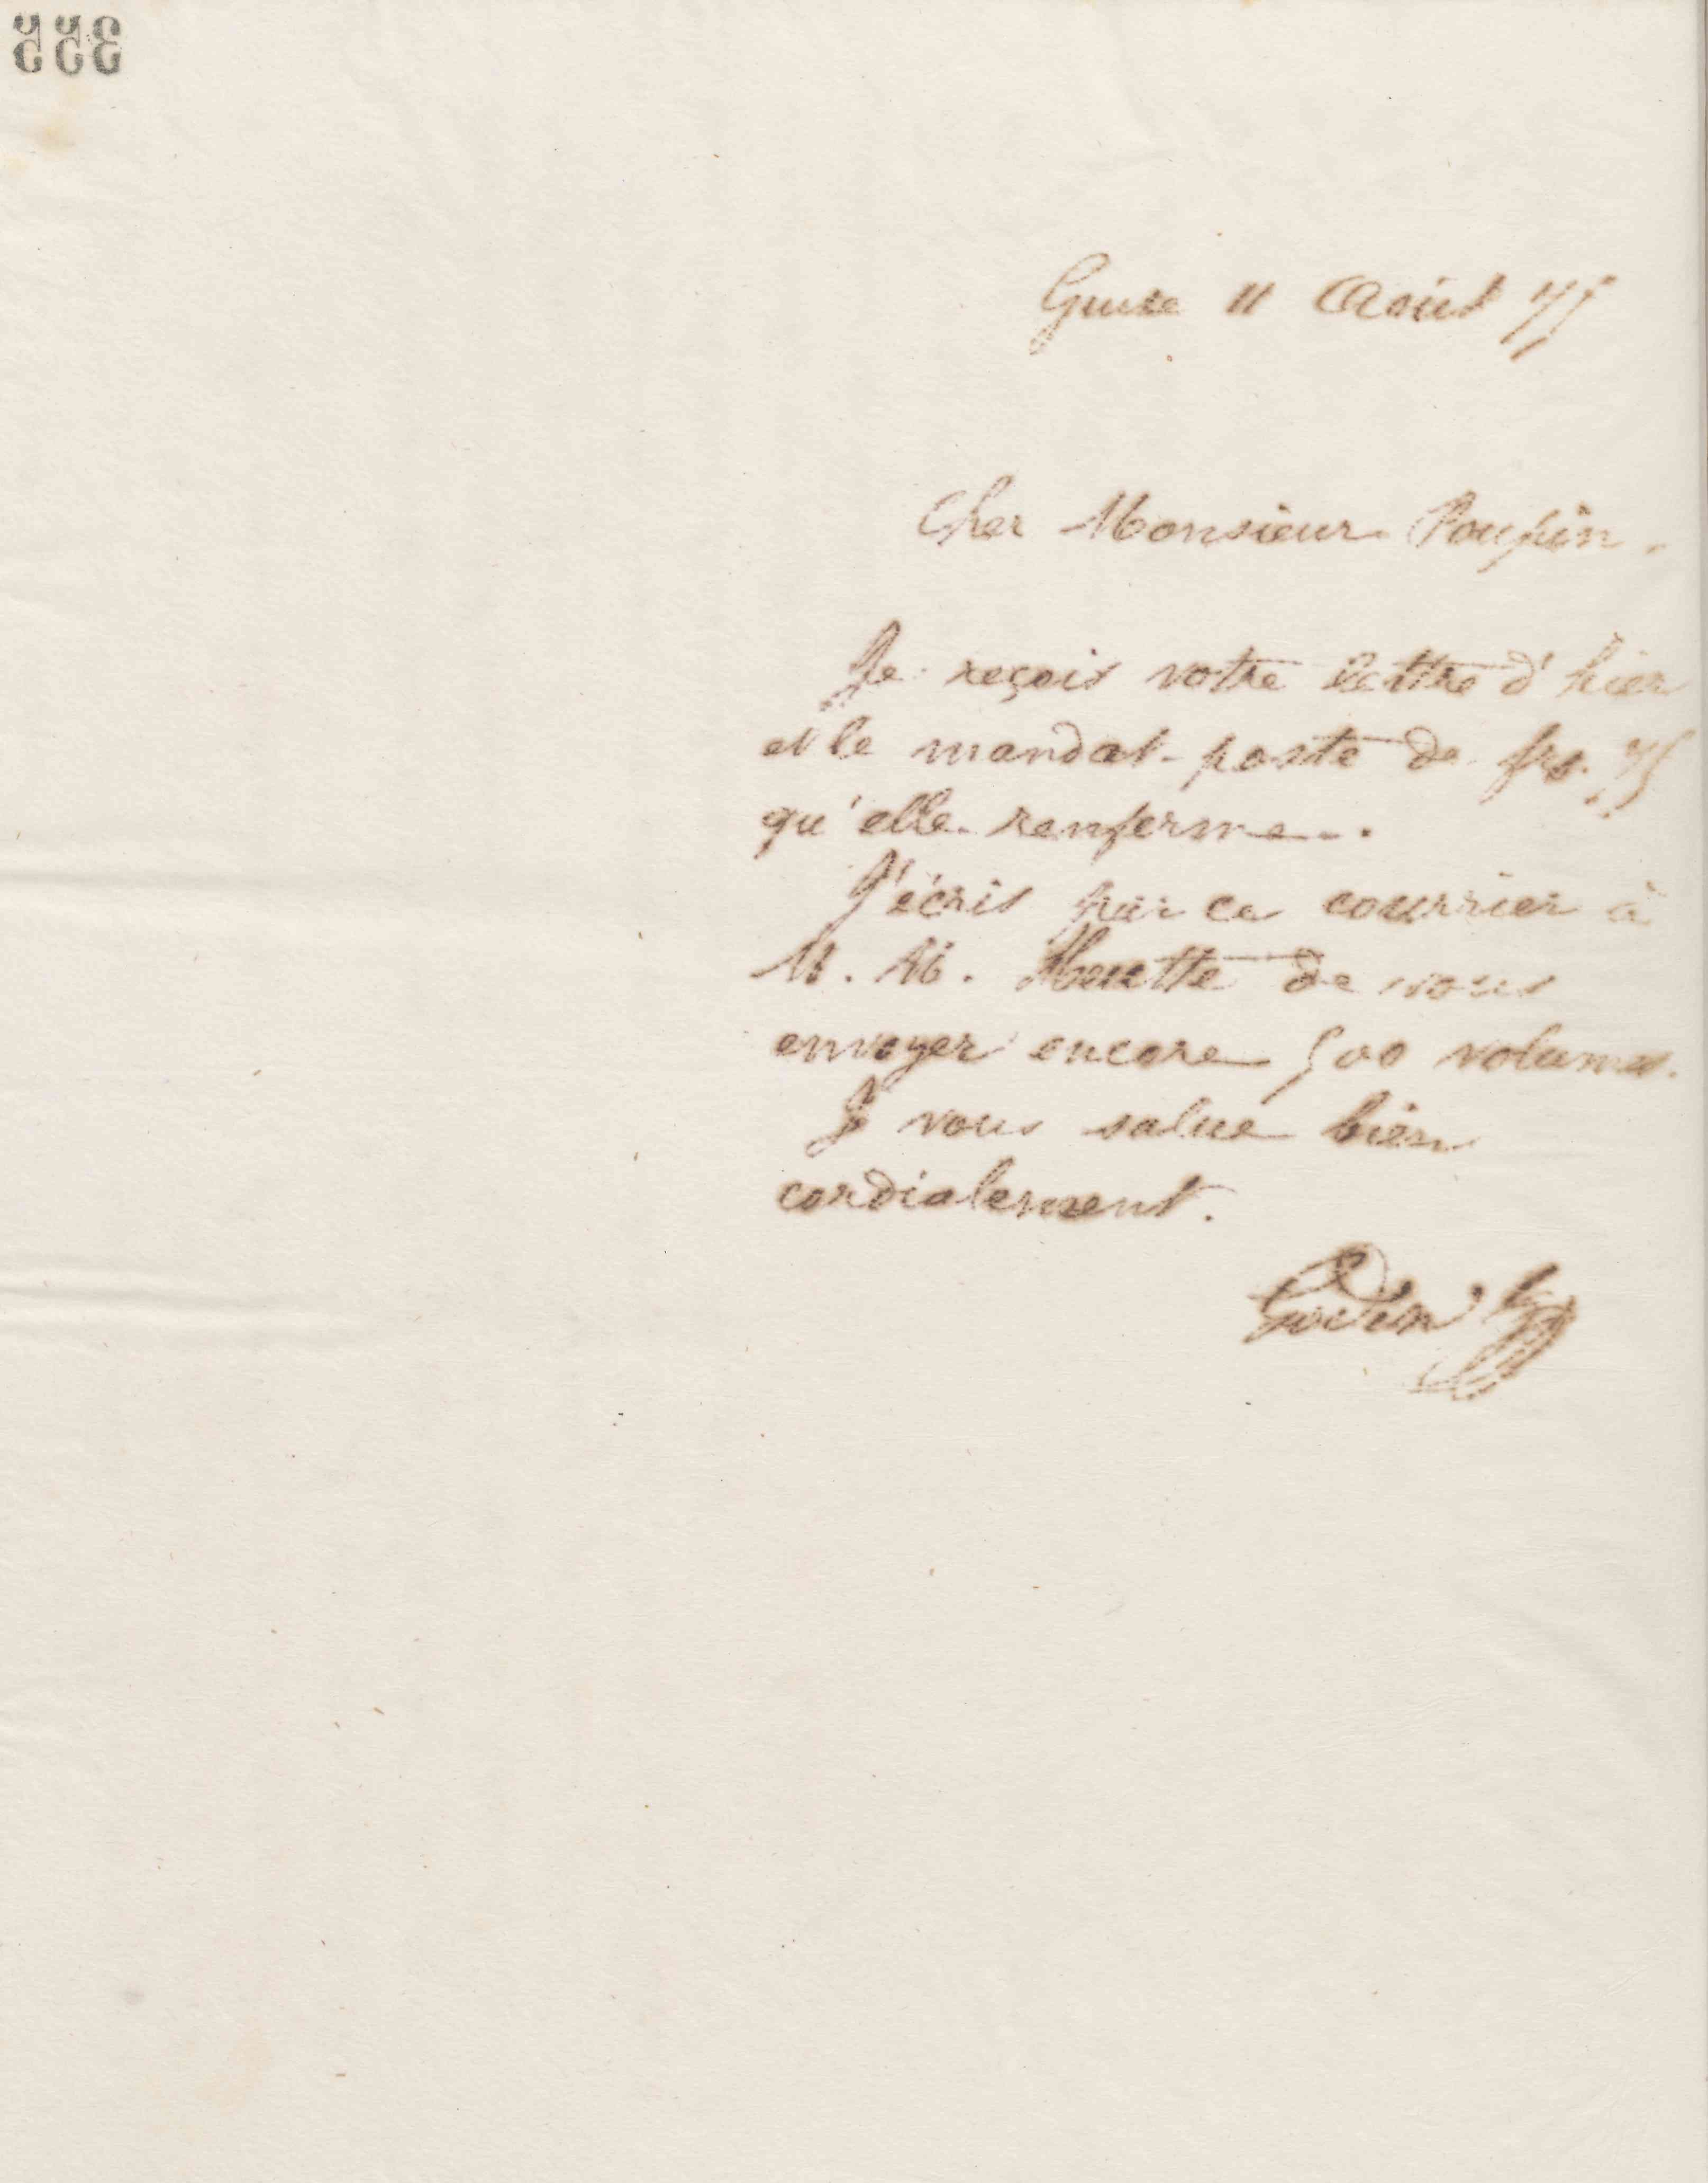 355
Guise 11 Août 75
Cher Monsieur Poupin.
Je reçois votre lettre d'hier
et le mandat-poste de frs. 75
qu'elle renferme.
J'écris par ce courrier à
M. M. de vous
envoyer encore 500 volumes.
Je vous salue bien
cordialement.
Godin